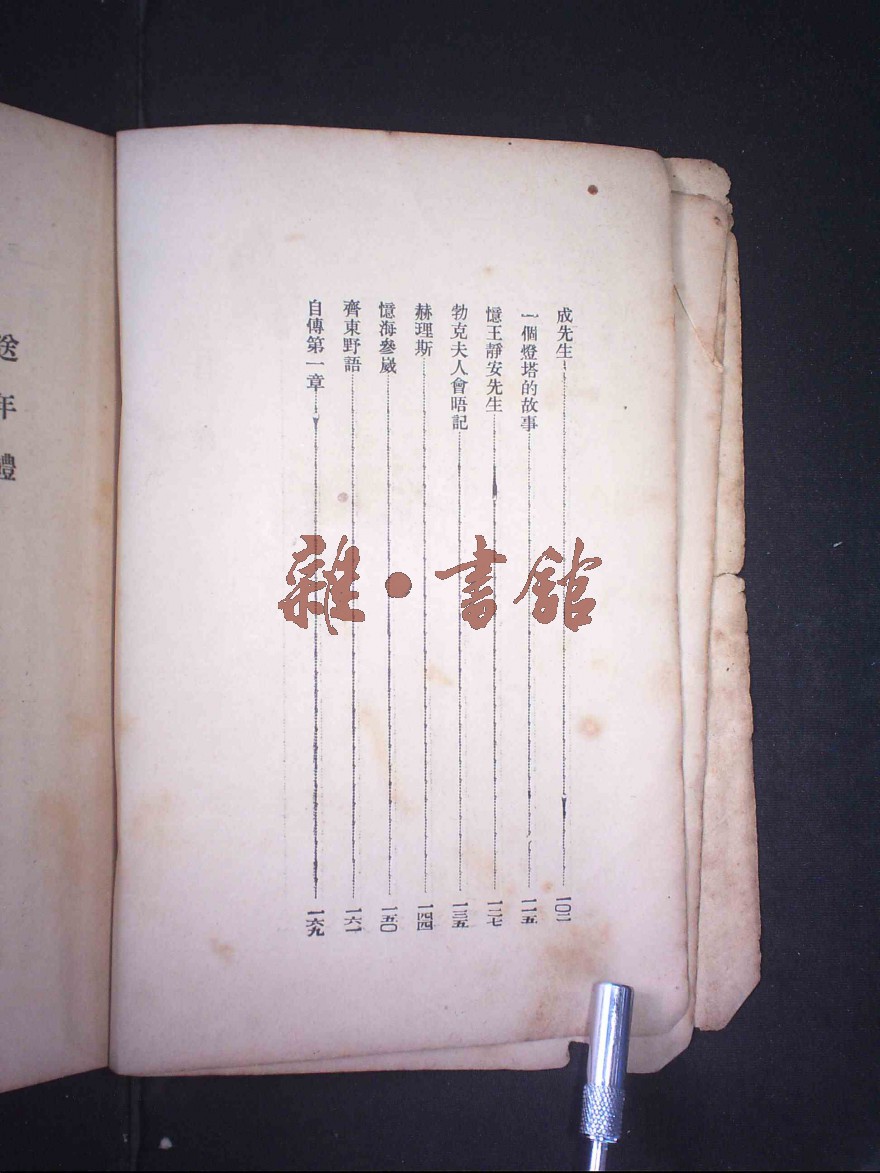 成先生 一〇二
一個燈塔的故事 一一五
憶王靜安先生 一二七
勃克夫人會晤記 一三五
赫理斯 一四四
憶海參崴 一五〇
齊東野語 一六一
自傳第一章 一六九
雜·書館
送年禮